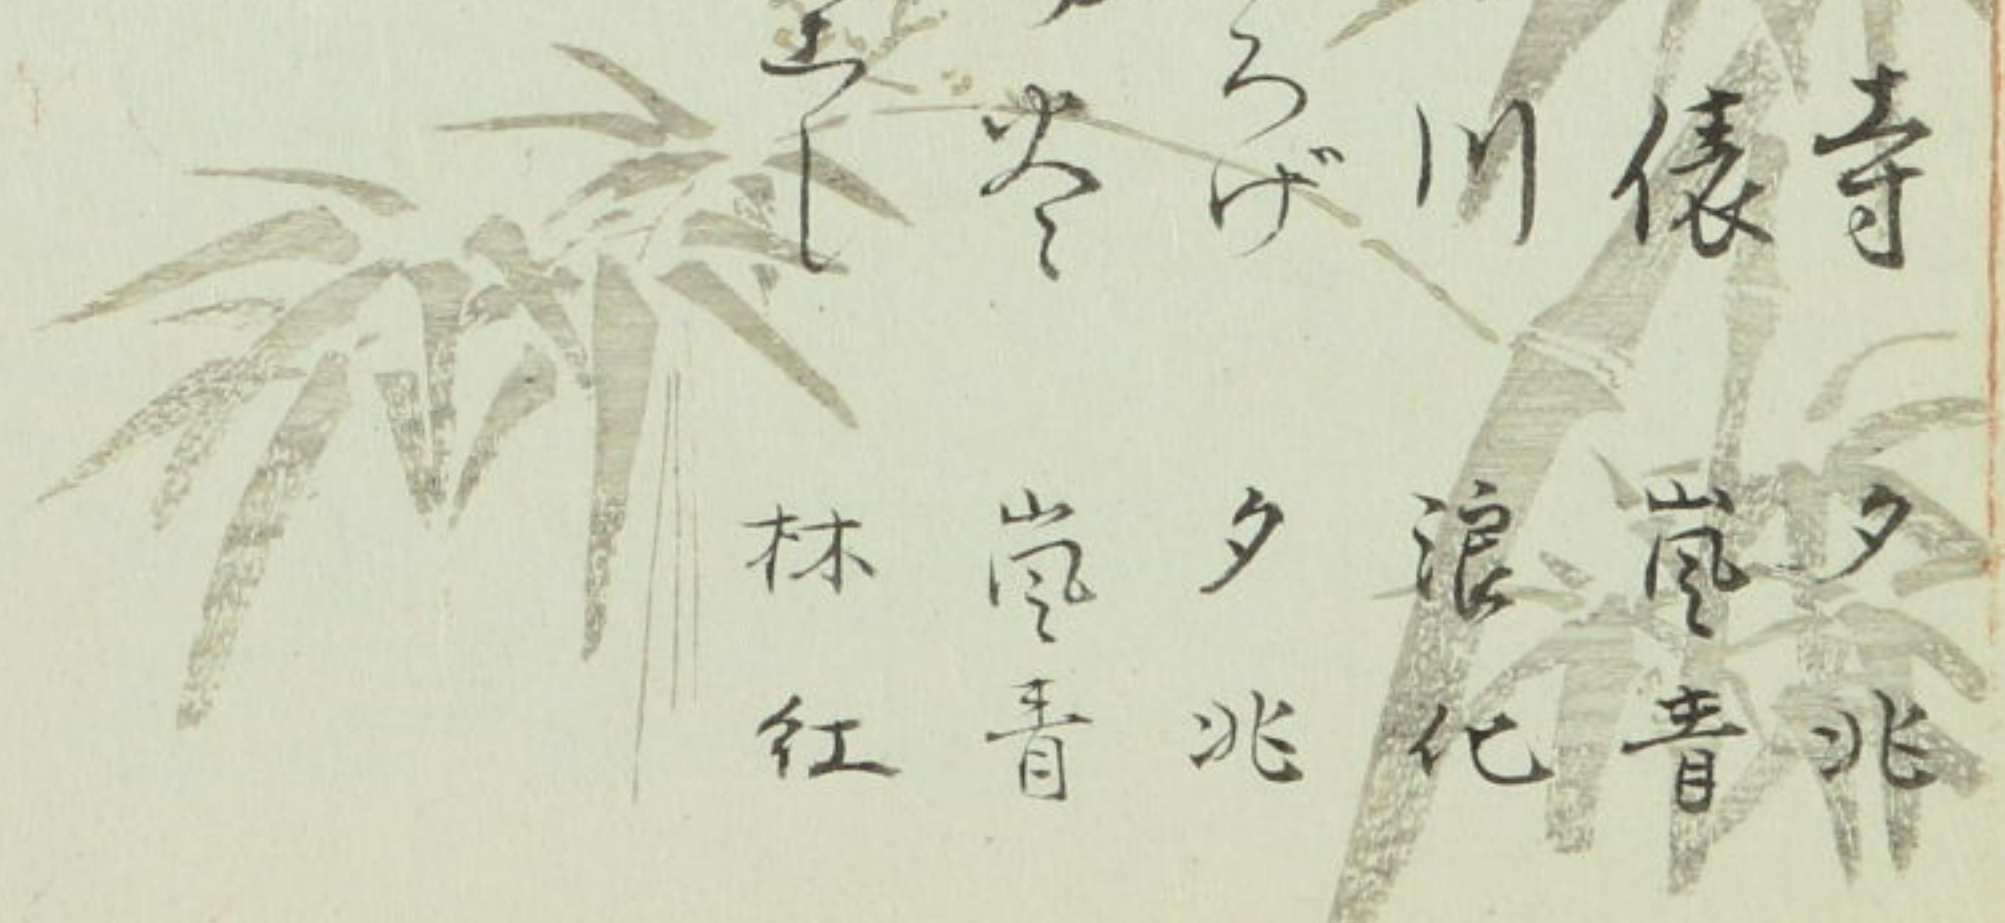 寺 夕兆
俵 嵐青
川 浪化
ろげ 夕兆
嵐青
し 林紅